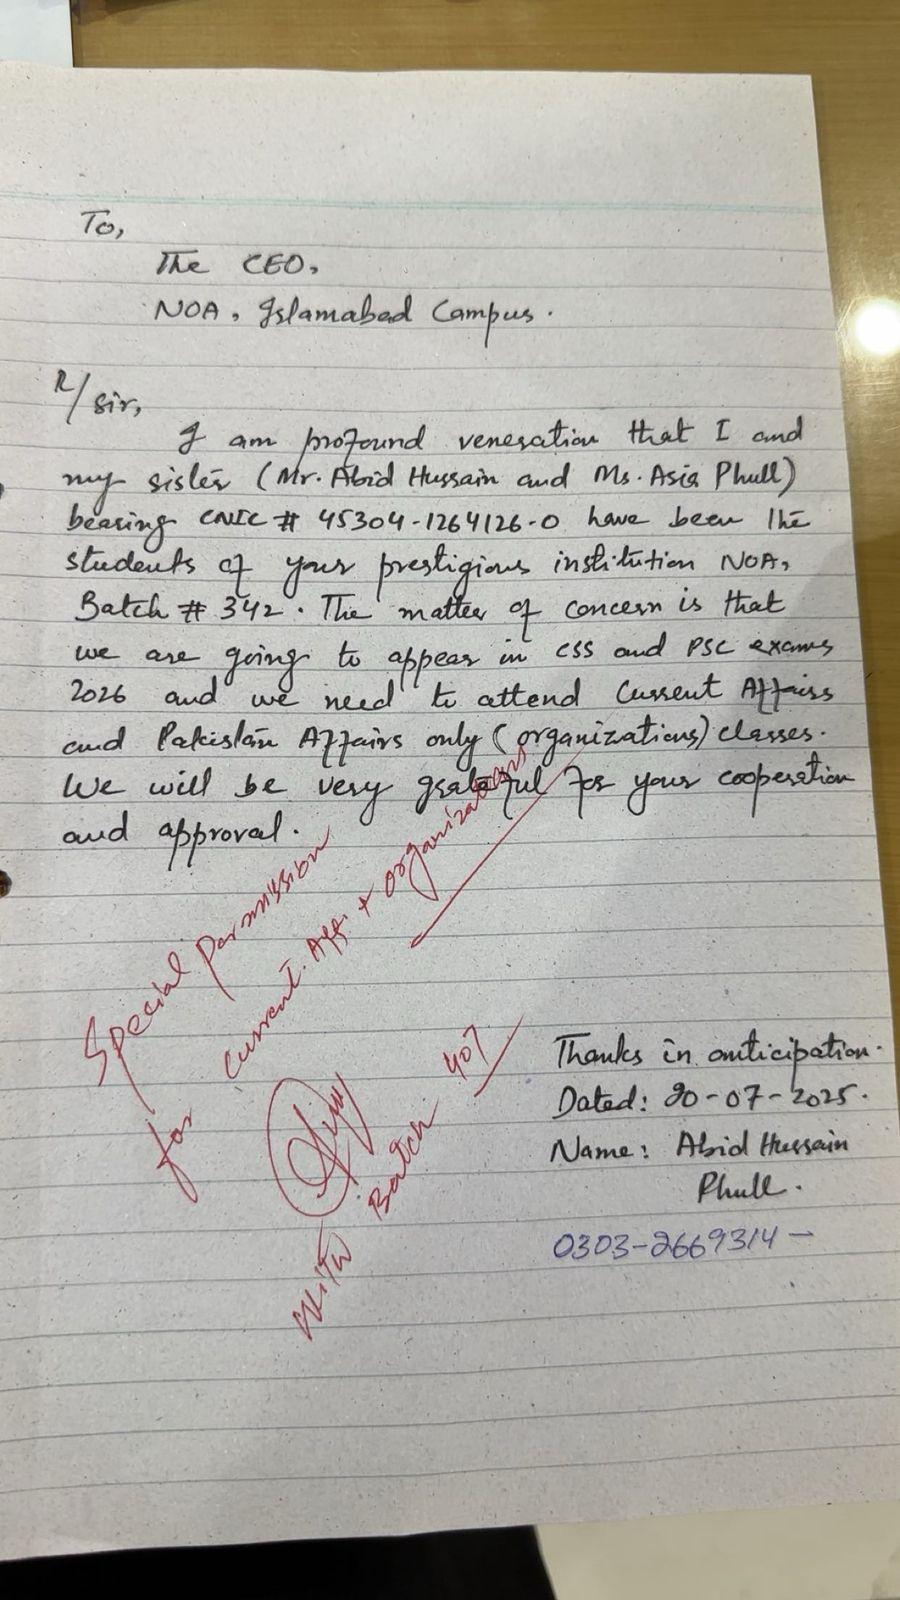 To,
The CEO,
NOA, Islamabad Campus.
R/Sir,
I am profound veneration that I and
my sister (Mr. Abid Hussain and Ms. Asia Phull)
bearing CNIC # 45304-1264126-0 have been the
students of your prestigious institution NOA,
Batch # 342. The matter of concern is that
we are going to appear in CSS and PSC exams
2026 and we need to attend Current Affairs
and Pakistan Affairs only (organizations) classes.
We will be very grateful for your cooperation
and approval.
Special permission
for current. Aff. + organizations
with Batch 407
Thanks in anticipation.
Dated: 20-07-2025.
Name: Abid Hussain
Phull.
0303-2669314-